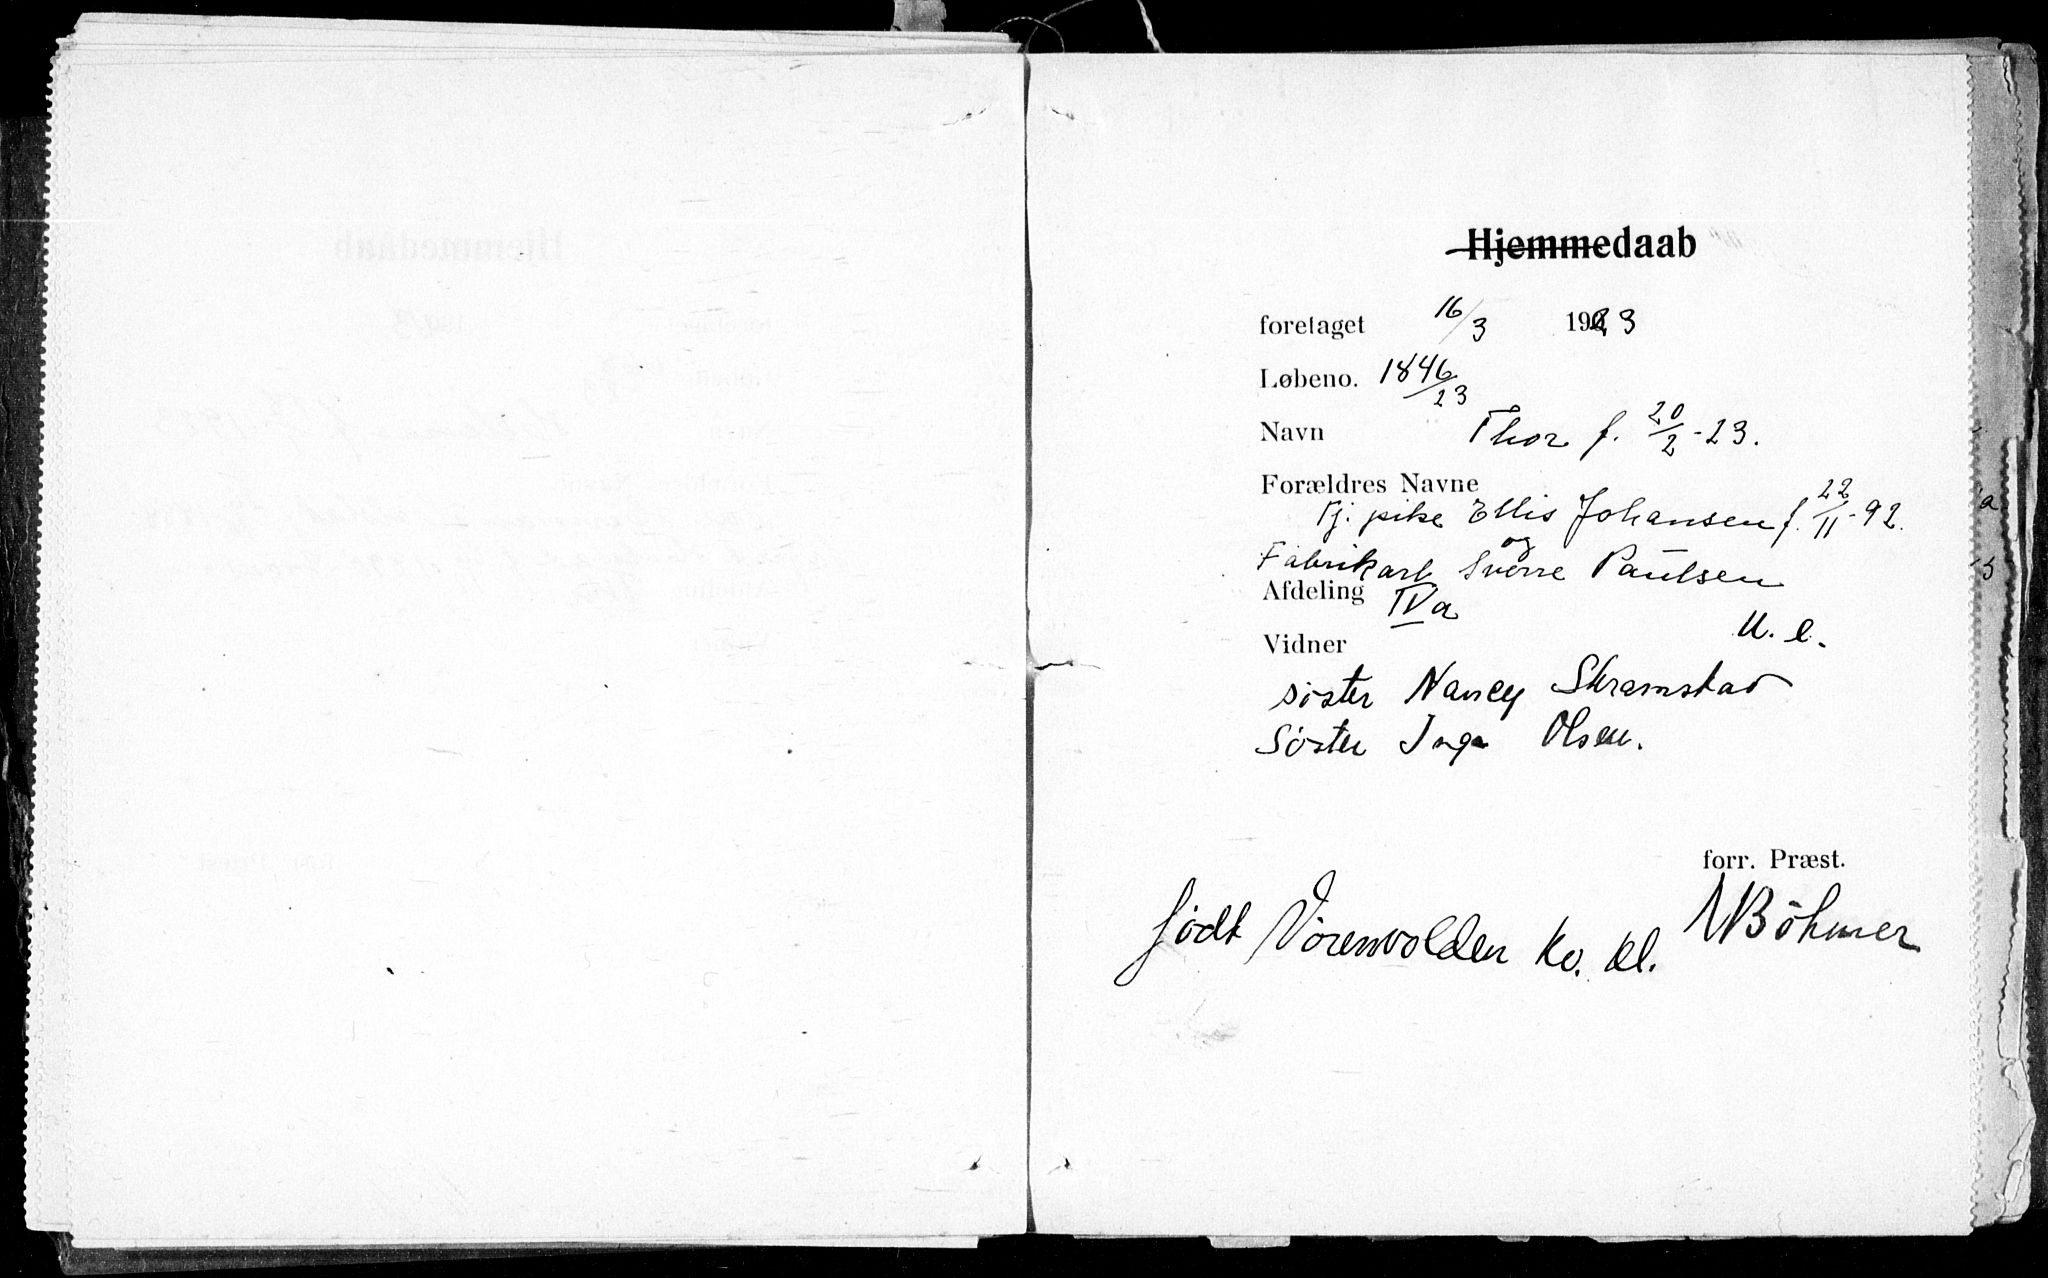 Hjemmedaab
foretaget 16/3 1923
Løbeno. 1846/23
Navn Thor f. 20/2-23.
Forældres Navne
Tj. pike Ellis Johansen f. 22/11-92.
og
Fabrikarb Sverre Paulsen
Afdeling IVa
U. e.
Vidner
søster Nancy Skramstad
Søster Inga Olsen.
forr. Præst.
født Kv. kl.
Böhmer